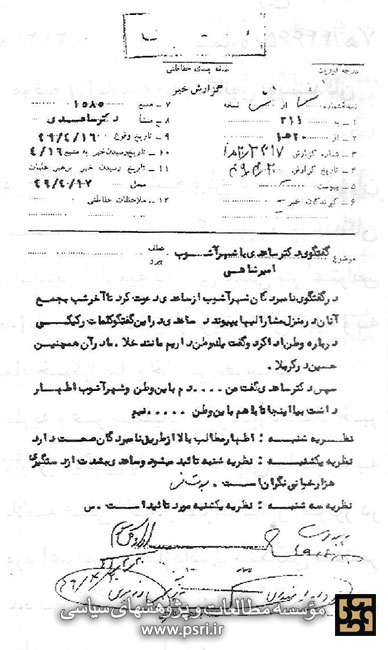 طبقه بندی حفاظتی
گزارش خبر
درجه فوریت
نسخه شماره از نسخه
۱ – به ۳۱۱
۲ – از ۲۰ ه‍ ۱
۳ – شماره گزارش
۴ – تاریخ گزارش
۵ – پیوست
۶ – گیرندگان خبر
۷ – منبع ۱۵۸۵
۸ – منشأ دکتر ساعدی
۹ – تاریخ وقوع ۴۹/۴/۱۶
۱۰ – تاریخ رسیدن خبر به منبع ۴/۱۶
۱۱ – تاریخ رسیدن خبر به رهبر عملیات
محل ۴۹/۴/۱۷
۱۲ – ملاحظات حفاظتی
موضوع گفتگوی دکتر ساعدی با شهرآشوب
امیرشاهی
عطف
پیرو
در گفتگوی نامبردگان شهرآشوب از ساعدی دعوت کرد تا آخر شب بجمع
آنان در منزل مشارالیها بپیوندد ساعدی در این گفتگو کلمات رکیکی
درباره وطن ادا کرد و گفت یک وطن داریم مانند خلا . مادر آن همچنین
حسین در کربلا .
سپس دکتر ساعدی گفت من ..... دم با این وطن و شهرآشوب اظهار
داشت بیا اینجا تا با هم با این وطن ..... نیم
نظریه شنبه : اظهار مطالب بالا از طریق نامبردگان صحت دارد
نظریه یکشنبه : نظریه شنبه تائید میشود و ساعدی بشدت از دستگیری
هزارخوانی نگران است .
نظریه سه شنبه : نظریه یکشنبه مورد تائید است . س
مؤسسه مطالعات و پژوهشهای سیاسی
www.psri.ir